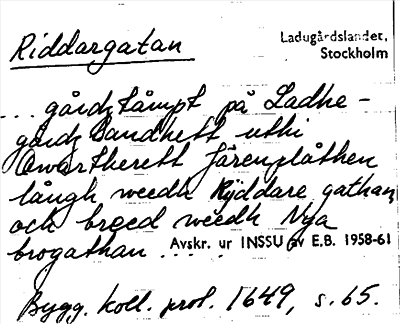 Riddargatan
Ladugårdslandet,
Stockholm
... gårdz tåmpt på Ladhe-
gårdz Landhett uthi
Qwartherett Järenplåthen
långh weedh Ryddare gathan
och breed weedh Nya
brogathan ....
Avskr. ur INSSU av E.B. 1958-61
Bygg. koll. prot. 1649, s. 65.